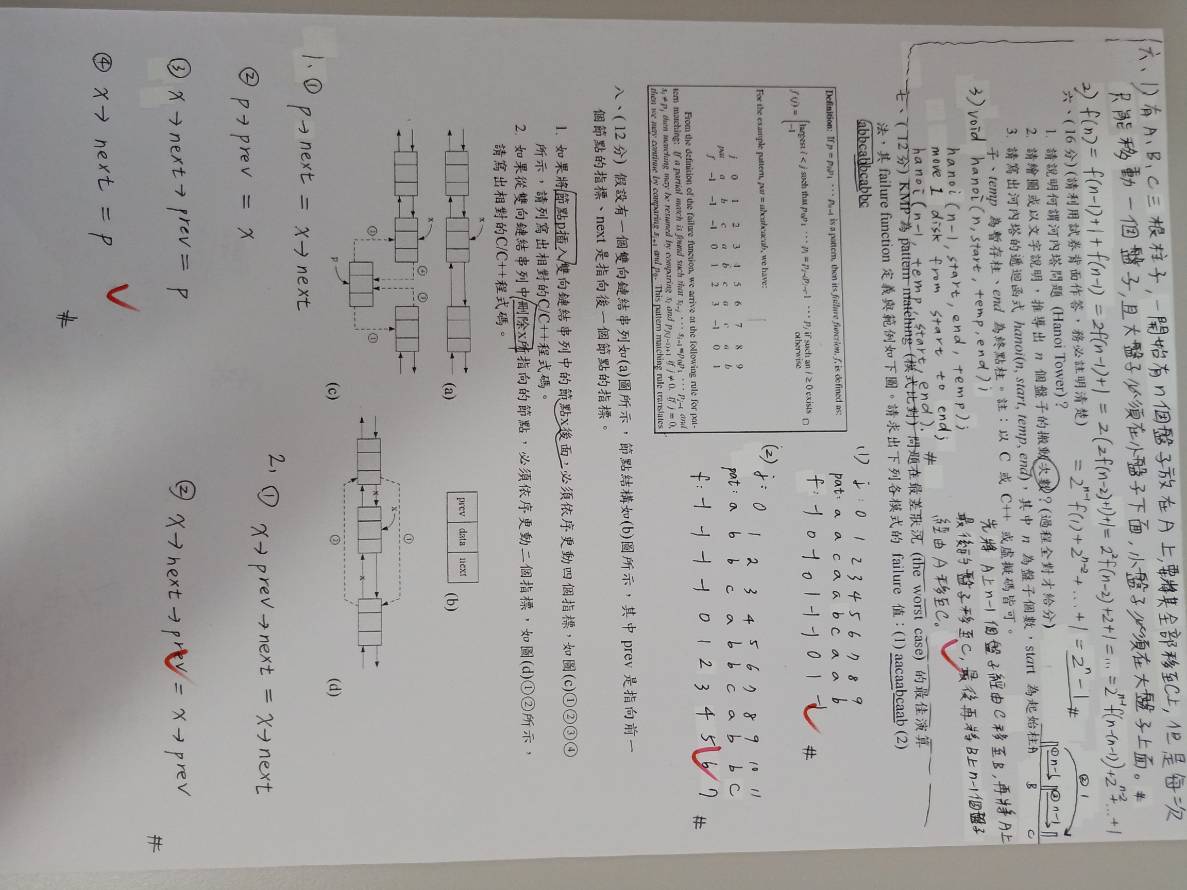 六、1) 有A、B、C三根柱子,一開始有n個盤子放在A上,要將其全部移至C上,但是每次
只能移動一個盤子,且大盤子必須在小盤子下面,小盤子必須在大盤子上面。#
2) f(n) = f(n-1)+1+f(n-1) = 2f(n-1)+1 = 2(2f(n-2)+1)+1 = 2²f(n-2)+2+1 = … = 2ⁿ⁻¹f(n-(n-1))+2ⁿ⁻²+…+1
= 2ⁿ⁻¹f(1)+2ⁿ⁻²+…+1 = 2ⁿ-1 #
六、(16 分)(請利用試卷背面作答,務必註明清楚)
1. 請說明何謂河內塔問題 (Hanoi Tower)?
2. 請繪圖或以文字說明,推導出 n 個盤子的搬動次數?(過程全對才給分)
3. 請寫出河內塔的遞迴函式 hanoi(n, start, temp, end),其中 n 為盤子個數,start 為起始柱
子、temp 為暫存柱、end 為終點柱。註:以 C 或 C++ 或虛擬碼皆可。
② 1
① n-1 ③ n-1
A B C
先將A上n-1個盤子經由C移至B,再將A上
最後的盤子移至C,最後再將B上n-1個盤子
經由A移至C。
3) void hanoi(n, start, temp, end);
hanoi(n-1, start, end, temp);
move 1 disk from start to end;
hanoi(n-1, temp, start, end). #
七、(12 分) KMP 為 pattern matching (模式比對) 問題在最差狀況 (the worst case) 的最佳演算
法,其 failure function 定義與範例如下圖。請求出下列各模式的 failure 值:(1) aacaabcaab (2)
abbcabbcabbc
Definition: If p = p₀p₁ ··· pₙ₋₁ is a pattern, then its failure function, f, is defined as:
f(j) = { largest i < j such that p₀p₁ ··· pᵢ = pⱼ₋ᵢpⱼ₋ᵢ₊₁ ··· pⱼ if such an i ≥ 0 exists
-1 otherwise
For the example pattern, pat = abcabcacab, we have:
j 0 1 2 3 4 5 6 7 8 9
pat a b c a b c a c a b
f -1 -1 -1 0 1 2 3 -1 0 1
From the definition of the failure function, we arrive at the following rule for pat-
tern matching: If a partial match is found such that sᵢ₋ⱼ ··· sᵢ₋₁ = p₀p₁ ··· pⱼ₋₁ and
sᵢ ≠ pⱼ then matching may be resumed by comparing sᵢ and p_f(j-1)+1 if j ≠ 0. If j = 0,
then we may continue by comparing sᵢ₊₁ and p₀. This pattern matching rule translates
(1) j: 0 1 2 3 4 5 6 7 8 9
pat: a a c a a b c a a b
f: -1 0 -1 0 1 -1 -1 0 1 -1 #
(2) j: 0 1 2 3 4 5 6 7 8 9 10 11
pat: a b b c a b b c a b b c
f: -1 -1 -1 -1 0 1 2 3 4 5 6 7 #
八、(12 分) 假設有一個雙向鏈結串列如(a)圖所示,節點結構如(b)圖所示,其中 prev 是指向前一
個節點的指標、next 是指向後一個節點的指標。
1. 如果將節點p插入雙向鏈結串列中的節點x後面,必須依序更動四個指標,如圖(c)①②③④
所示,請列寫出相對的C/C++程式碼。
2. 如果從雙向鏈結串列中刪除x所指向的節點,必須依序更動二個指標,如圖(d)①②所示,
請寫出相對的C/C++程式碼。
x
(a)
prev data next
(b)
x ④ ③
② ①
p
(c)
①
x
x x
②
(d)
1. ① p→next = x→next
② p→prev = x
③ x→next→prev = p
④ x→next = p
#
2. ① x→prev→next = x→next
② x→next→prev = x→prev
#